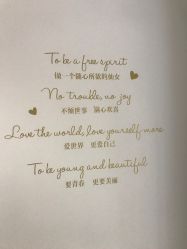 To be a free spirit
做一个随心所欲的仙女
No trouble, no joy
不倾世事 随心欢喜
Love the world, love yourself more
爱世界 更爱自己
To be young and beautiful
要青春 更要美丽